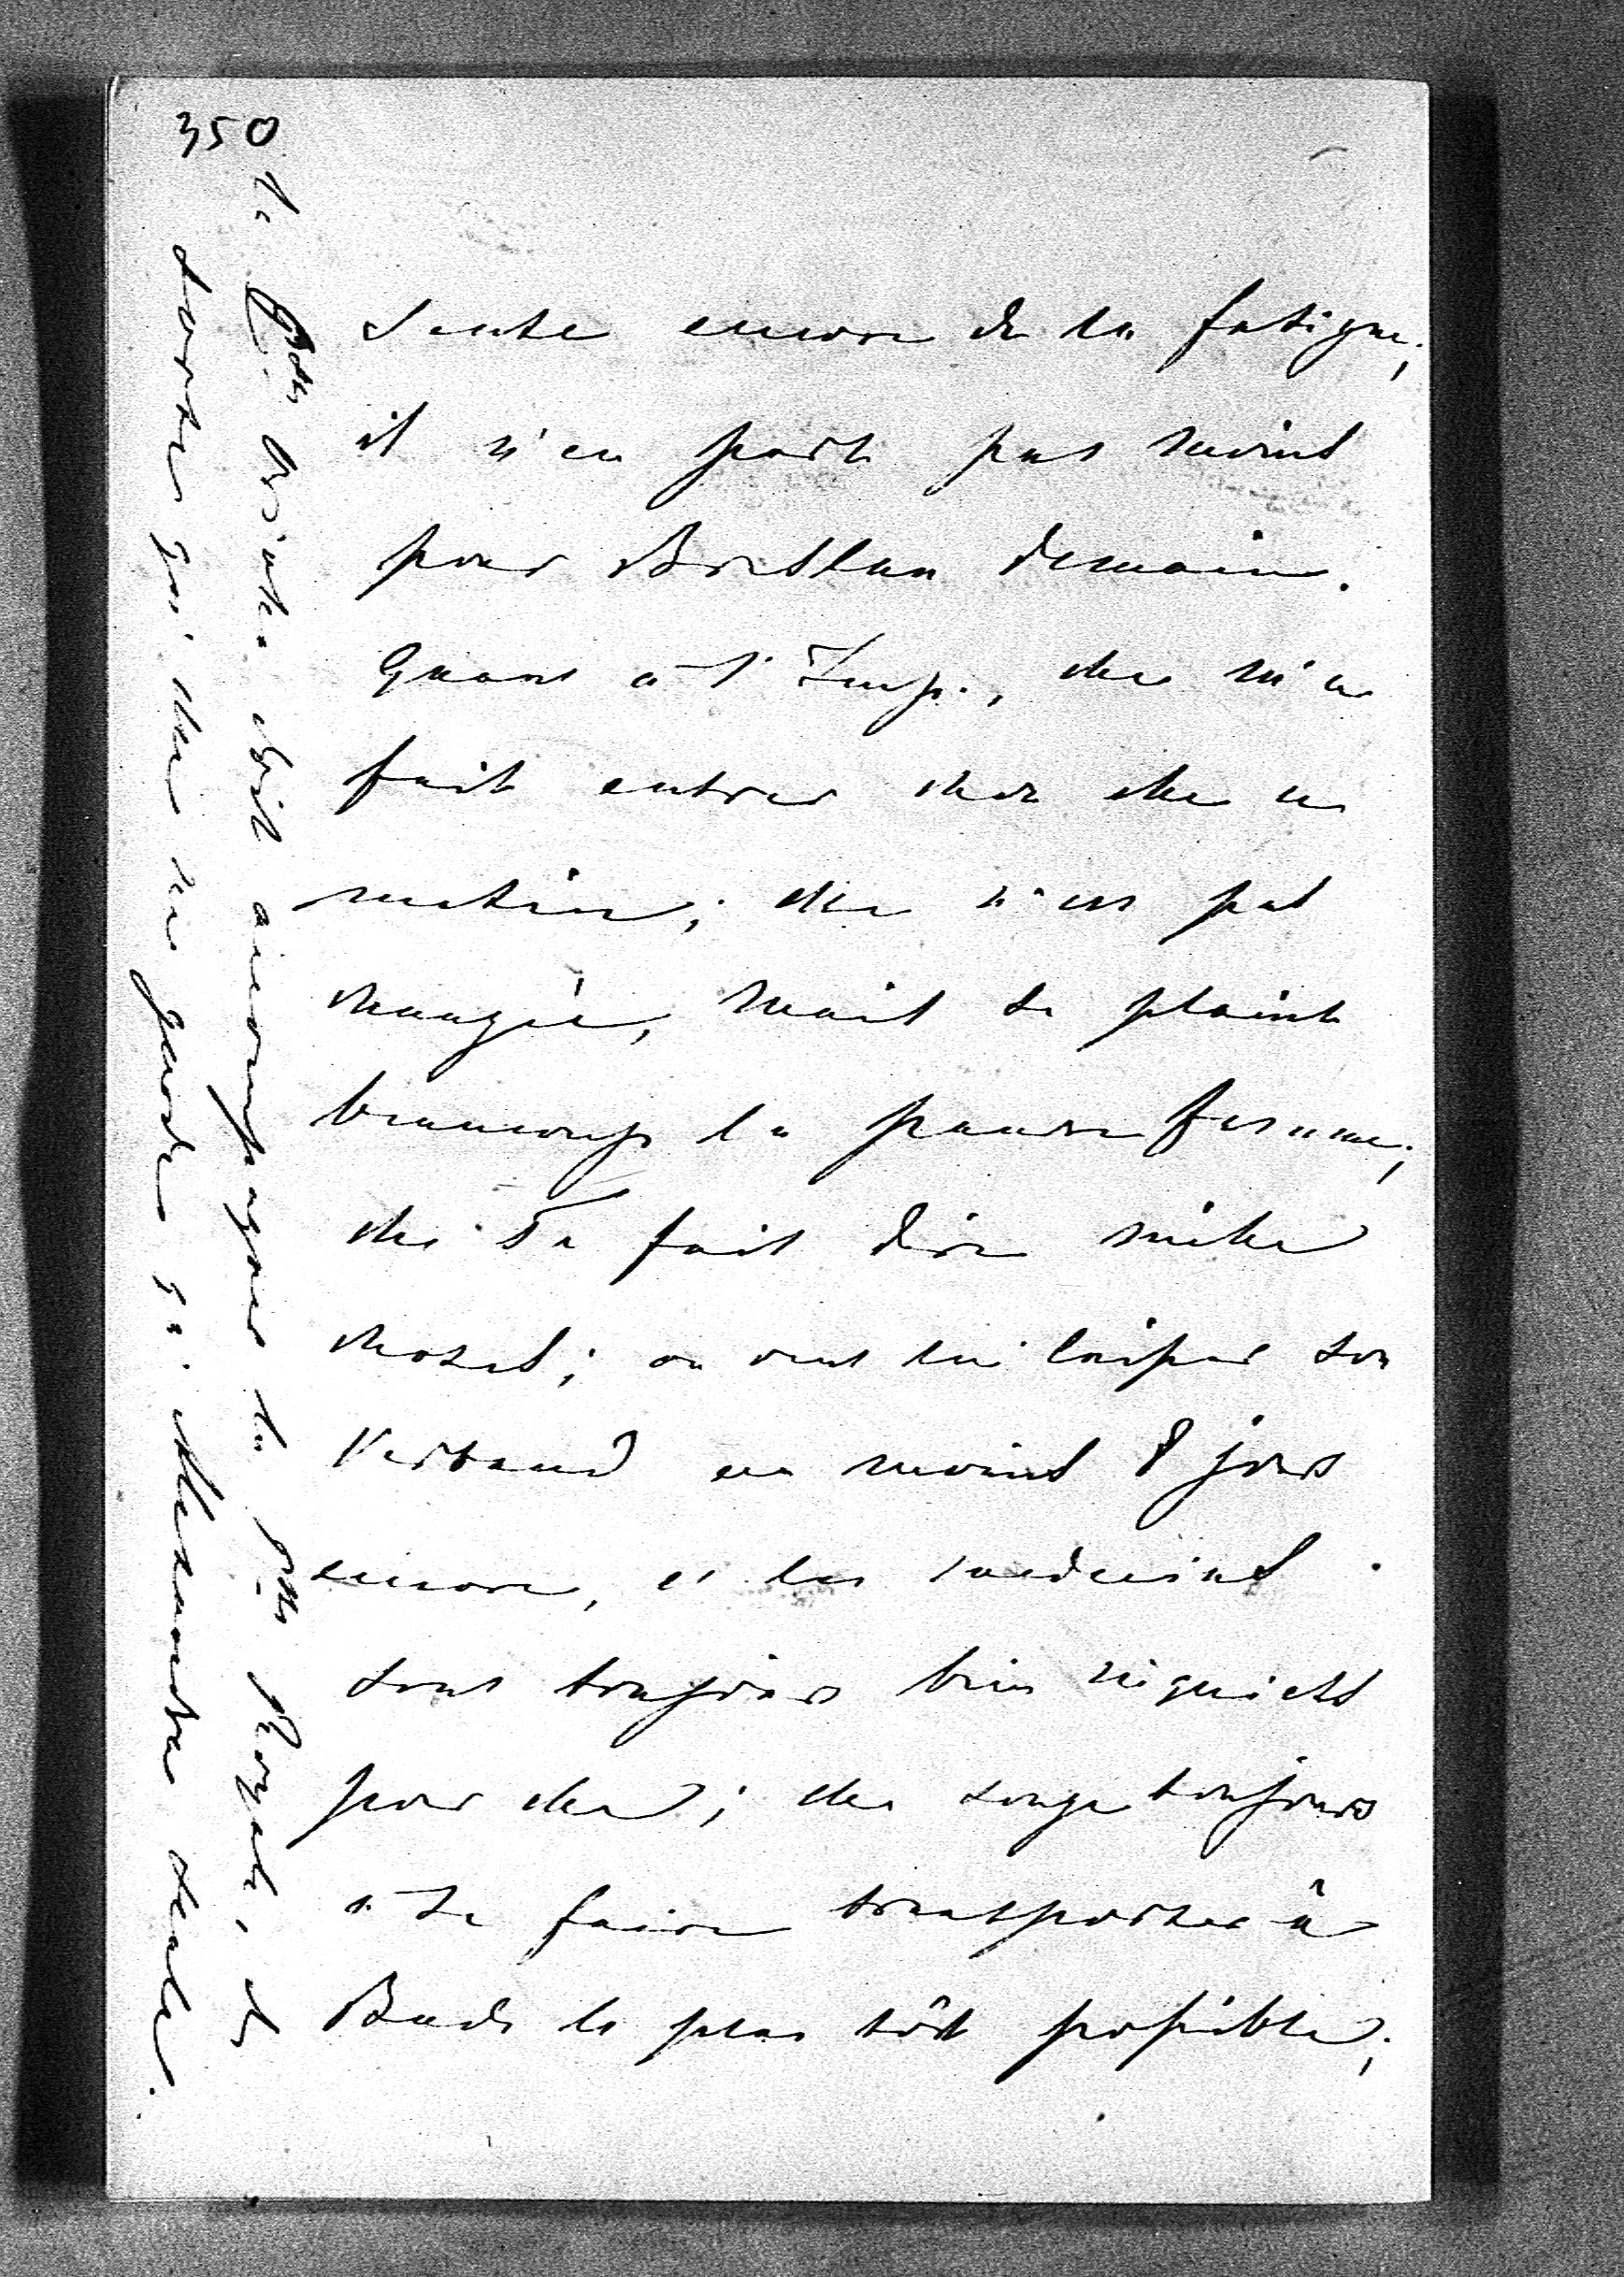 350
sente encore de la fatigue;
il n'en part pas moins
pour Breslau demain.
Quant à l'Imp., elle m'a
fait entrer chez elle ce
matin; elle n'est pas
changée, mais se plaint
beaucoup la pauvre femme;
elle Te fait dire mille
choses; on veut lui laisser son
Verband au moins 8 jours
encore, et les médecins
sont toujours bien inquiets
pour elle; elle songe toujours
à se faire transporter à
Bade le plus tôt possible;
la doit accompagner la Psse Royale, de
sorte qu'elle ne garde qu'Alexandra seule.